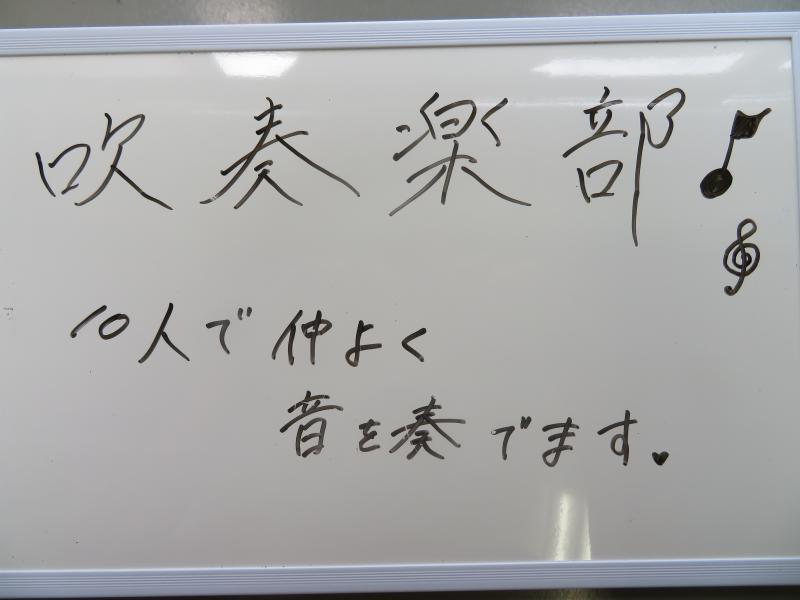 吹奏楽部♪
10人で仲よく
音を奏でます。